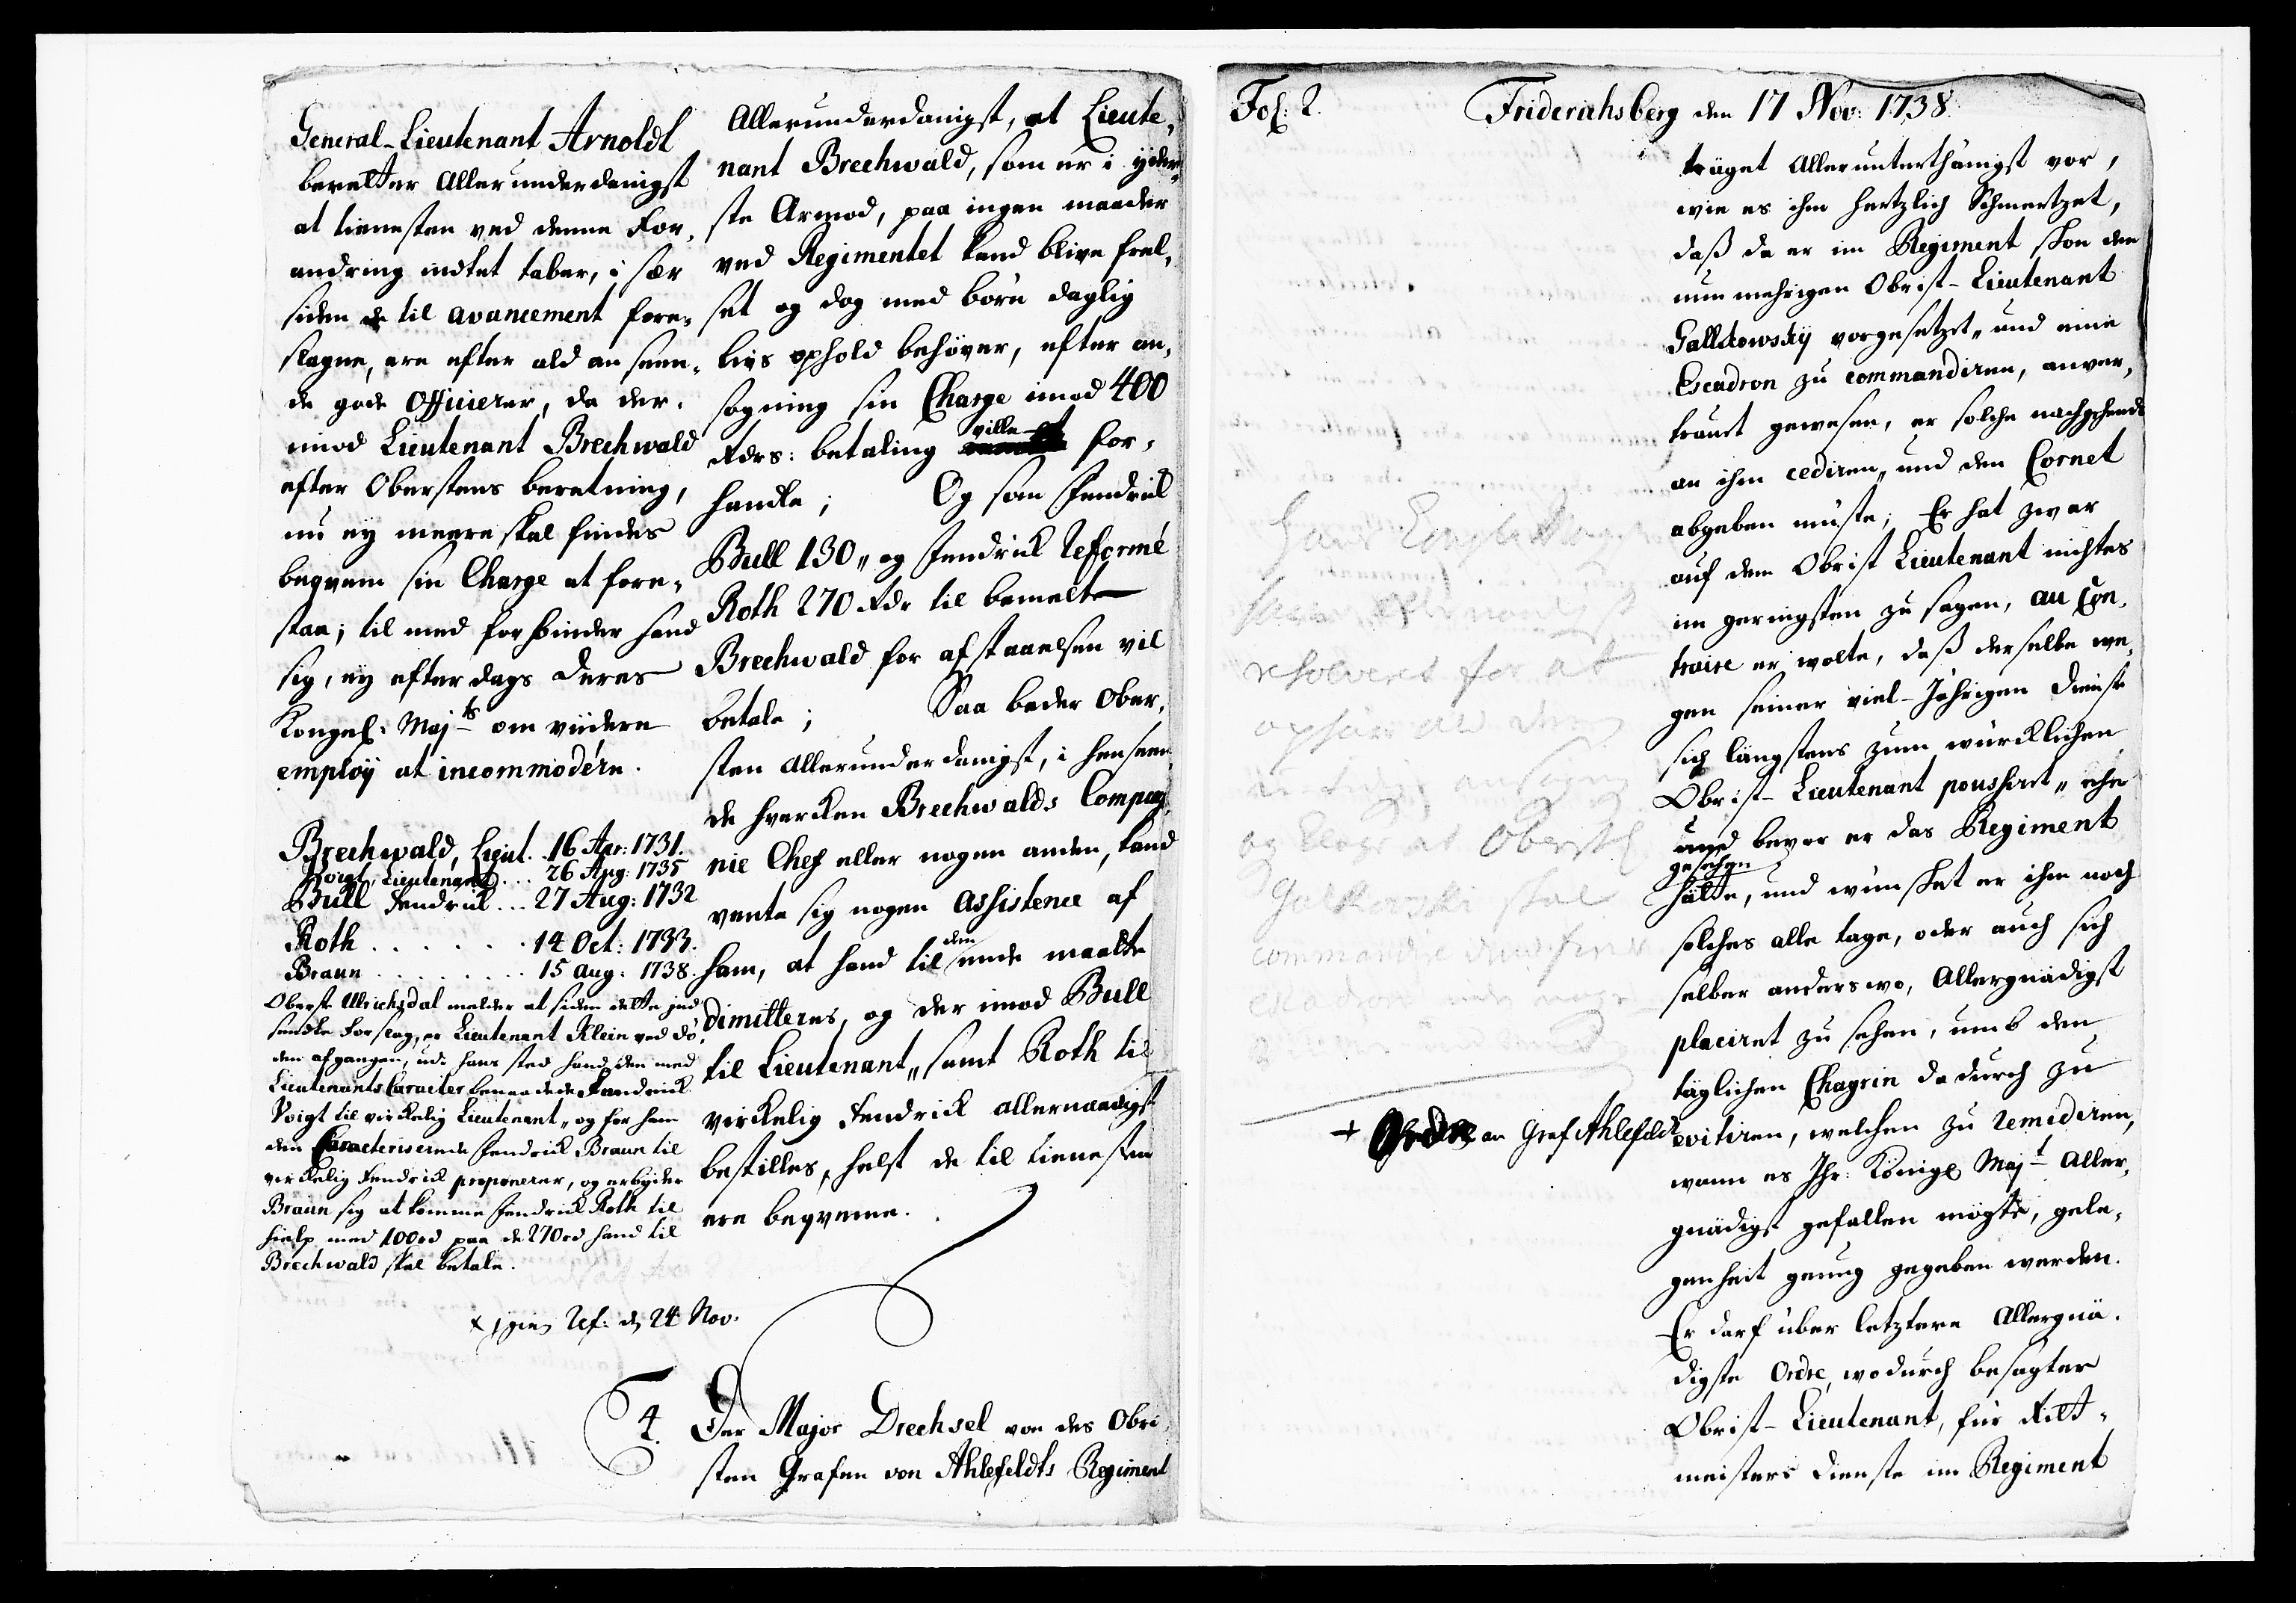 General-Lieutenant Arnoldt
beretter Allerunderdanigst
at tienesten ved denne For-
andring indtet taber, i sær
siden de til avancement fore-
slagne, ere efter ald anseen-
de gode Officierer, da der-
imod Lieutenant Brechwald
efter Oberstens beretning,
nu ey meere skal findes
beqvem sin Charge at fore-
staa; til med forbinder hand
sig, ey efterdags Deres
Kongel: Majts om viidere
employ at incommodére.
Brechwald, Lieut. 16 Apr: 1731.
Voigt, Lieutenant . . . 26 Apr: 1735
Bull Fendrick . . . 27 Aug: 1732
Roth . . . . . . 14 Oct: 1733.
Braun . . . . . . . . 15 Aug: 1738.
Oberste Ulrichsdal melder at siden dette ind
sendte Forslag, er Lieutenant Klein ved Dö-
den afgangen, udi hans sted hand den med
Lieutenants Caracter benaadede Fendrick
Voigt til virkelig Lieutenant, og for ham
den Caracteriserede Fendrick Braun til
virkelig Fendrick proponerer, og erbyder
Braun sig at komme Fendrick Roth til
hielp med 100 rd paa de 270 rd hand til
Brechwald skal betale.
Ref: d 24 Nov.
Allerunderdanigst, at Lieute-
nant Brechwald, som er i yder-
ste Armod, paa ingen maader
ved Regimentet kand blive frel-
set og dog med börn daglig
livs ophold behöver, efter an-
sögning sin Charge imod 400
Rdrs: betaling ville for-
handle; Og som Fendrick
Bull 130,, og Fendrick Reformé
Roth 270 Rdr til bemelte
Brechwald for afstaaelsen vil
betale; Saa beder Ober-
sten Allerunderdanigst, i henseen-
de hverken Brechwalds Compag-
nie Chef eller nogen anden, kand
vente sig nogen Assistence af
ham, at hand til den ende maatte
dimitteres, og der imod Bull
til Lieutenant,, samt Roth til
virkelig Fendrick allernaadigst
bestilles, helst de til tienesten
ere beqvemme.
4. Der Major Drechsel von des Obri-
sten Grafen von Ahlefeldts Regiment
Fol: 2. Friderichsberg den 17 Nov: 1738.
träget Allerunterthänigst vor,
wie es ihm hertzlich Schmertzet,
daß da er im Regiment schon dem
nunmehrigen Obrist-Lieutenant
Gallkowsky vorgesetzet,, und eine
Escadron zu commandiren, anver-
trauet gewesen, er solche nachgehends
an ihm cediren,, und den Cornet
abgeben müste; Er hat zwar
auf dem Obrist Lieutenant nichtes
im geringsten zu sagen, au Con-
traire er wolte, daß derselbe we-
gen seiner viel-Jährigen Dienste
sich längstens zum würcklichen
Obrist-Lieutenant poussiret,, ehe
und bevor er das Regiment
gesehen
hätte, und wünschet er ihm noch
solches alle tage, oder auch sich
selber anderswo, Allergnädigst
placiret zu sehen, umb den
täglichen Chagrin dadurch zu
evitiren, welchen zu remediren,
wann es Ihr: Königl Majt Aller-
gnädigst gefallen mögte, gele-
genheit genug gegeben werden.
Er darf über letztere Allergnä-
digste Ordre, wodurch besagter
Obrist-Lieutenant, für Ritt-
meisters Dienste im Regiment
resolveres for at
og at Oberstl
Galkowski skal
commandre
escadron
+ Ordre an Graf Ahlefeldt